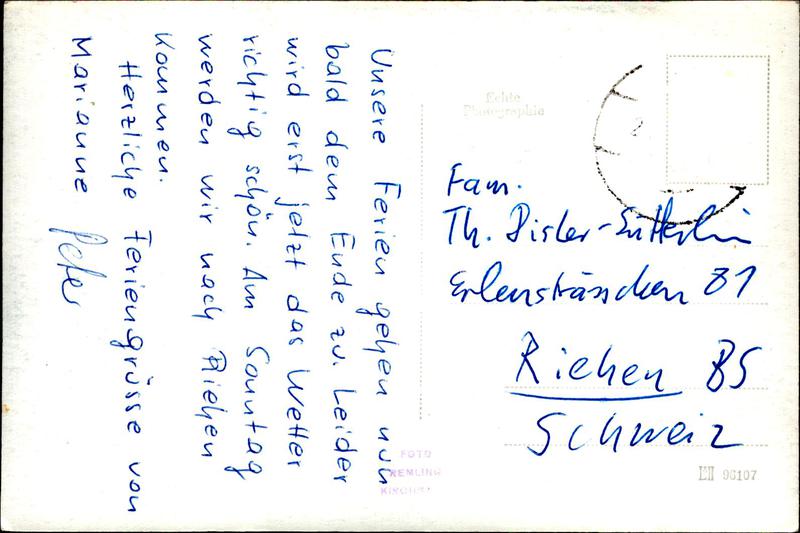 Unsere Ferien gehen nun
bald dem Ende zu. Leider
wird erst jetzt das Wetter
richtig schön. Am Sonntag
werden wir nach Riehen
kommen.
Herzliche Feriengrüsse von
Marianne Peter
Echte
Photographie
Fam.
Th. Disler-Sutterlin
Erlensträsschen 81
Riehen BS
Schweiz
FOTO
REMLING
96107